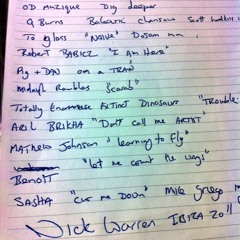 OD Muzique Dig deeper
G Burns Balearic chansons Scott
To gloss "NAIVE" Dosem
Robert BABICZ "I Am Here"
Pig + DAN on a TRAIN
Midnight Rambles Scarab"
Totally Enormous Extinct Dinosaur "TROUBLE
ARIL BRIKHA "Don't call me ARTIST'
Mathew Johnson 'learning to Fly'
"let me count the ways"
Benoit
SASHA "Cut me Down" Mike Griego
Nick Warren IBIZA 20"